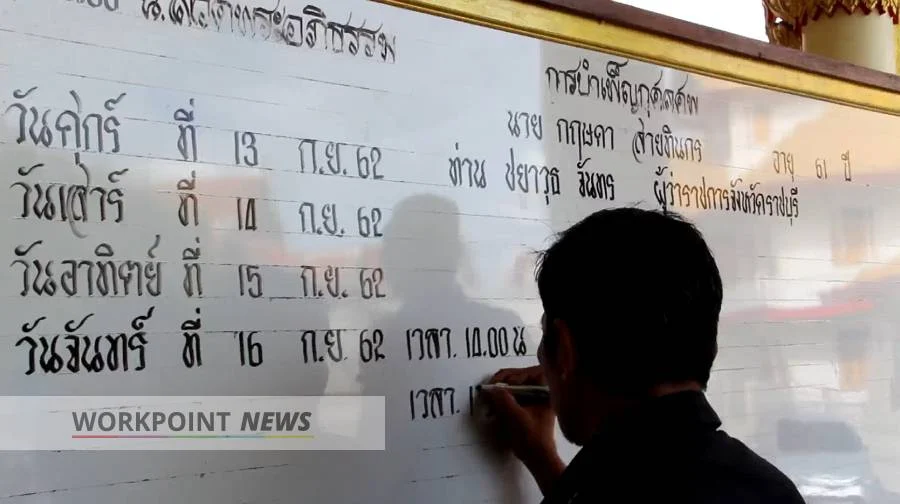 น.สวดพระอภิธรรม
การบำเพ็ญกุศลศพ
นาย กฤษดา สายทินกร อายุ 61 ปี
วันศุกร์ ที่ 13 ก.ย. 62 ท่าน ชยาวุธ จันทร ผู้ว่าราชการจังหวัดราชบุรี
วันเสาร์ ที่ 14 ก.ย. 62
วันอาทิตย์ ที่ 15 ก.ย. 62
วันจันทร์ ที่ 16 ก.ย. 62 เวลา. 14.00 น
เวลา. 1
WORKPOINT NEWS